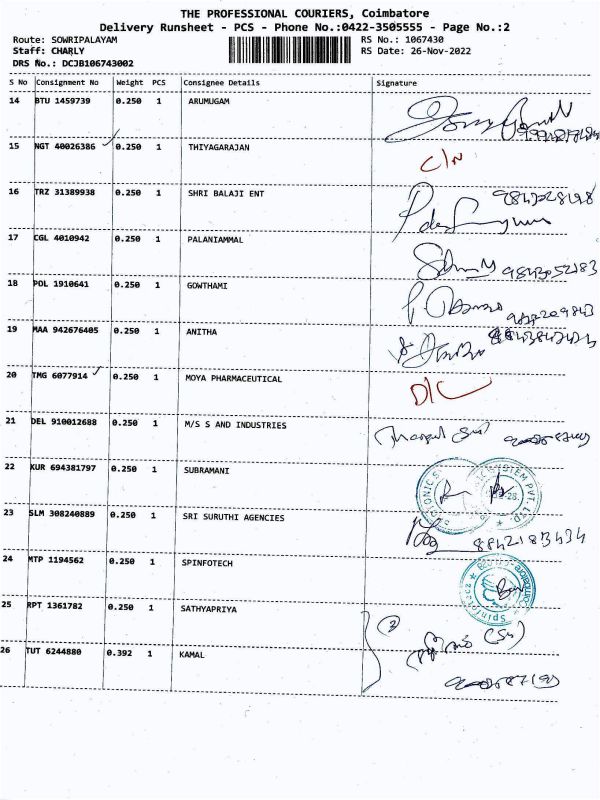 THE PROFESSIONAL COURIERS, Coimbatore
Delivery Runsheet - PCS - Phone No.:0422-3505555 - Page No.:2
Route: SOWRIPALAYAM RS No.: 1067430
Staff: CHARLY RS Date: 26-Nov-2022
DRS No.: DCJB106743002
S No Consignment No Weight PCS Consignee Details Signature
14 BTU 1459739 0.250 1 ARUMUGAM
15 NGT 40026386 0.250 1 THIYAGARAJAN C/N
16 TRZ 31389938 0.250 1 SHRI BALAJI ENT
17 CGL 4010942 0.250 1 PALANIAMMAL 9843052183
18 POL 1910641 0.250 1 GOWTHAMI
19 MAA 942676405 0.250 1 ANITHA
20 TMG 6077914 0.250 1 MOYA PHARMACEUTICAL D/C
21 DEL 910012688 0.250 1 M/S S AND INDUSTRIES
22 KUR 694381797 0.250 1 SUBRAMANI
23 SLM 308240889 0.250 1 SRI SURUTHI AGENCIES 8842183434
24 MTP 1194562 0.250 1 SPINFOTECH
25 RPT 1361782 0.250 1 SATHYAPRIYA
26 TUT 6244880 0.392 1 KAMAL